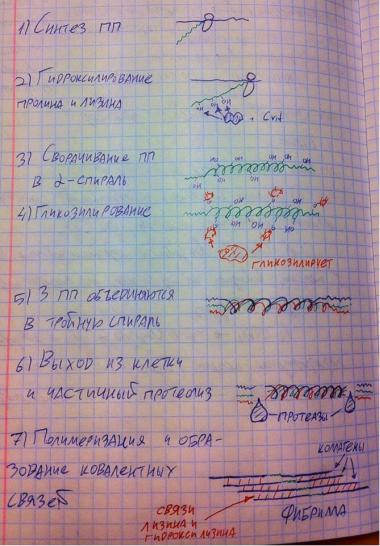 1) Синтез ПП
2) Гидроксилирование
пролина и лизина
+ C vit
3) Сворачивание ПП
в α-спираль
4) Гликозилирование
гликозилирует
5) 3 ПП объединяются
в тройную спираль
6) Выход из клетки
и частичный протеолиз
протеазы
7) Полимеризация и обра-
зование ковалентных
связей
связи
лизина и
гидроксилизина
фибрилла